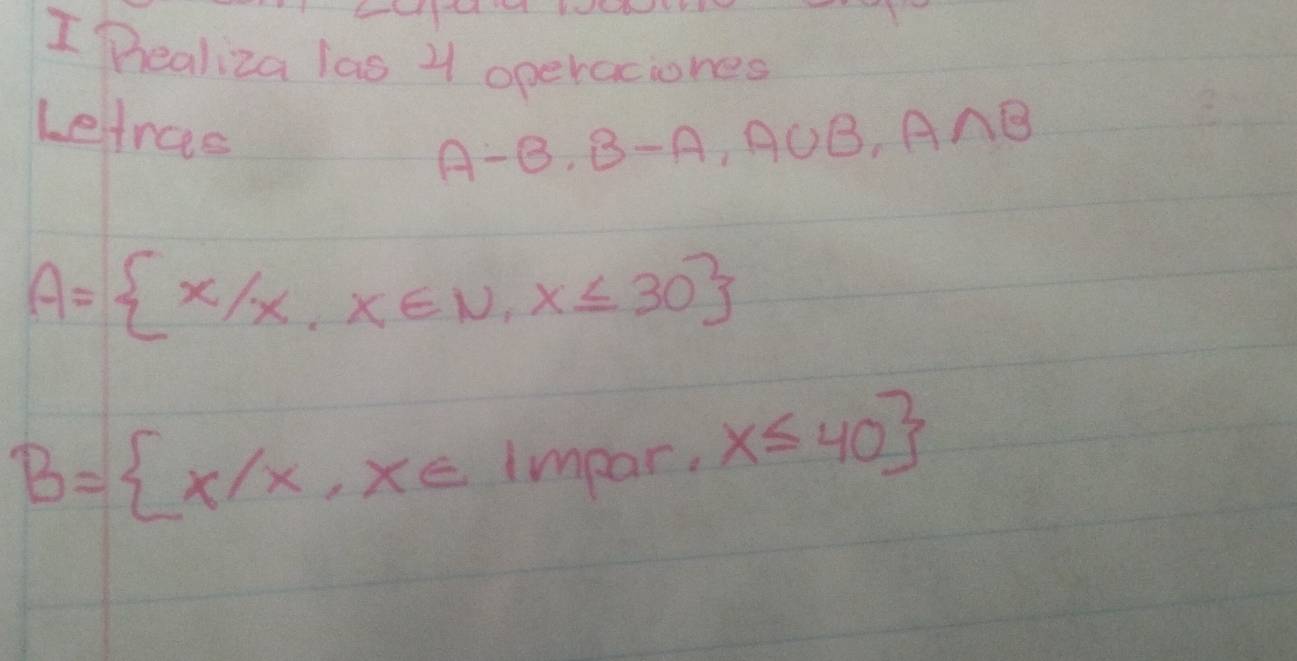 I Realiza las 4 operaciones
Letras
A-B, B-A, A∪B, A∩B
A={ x/x, x∈N, x≤30}
B={ x/x, x∈ Impar, x≤40}